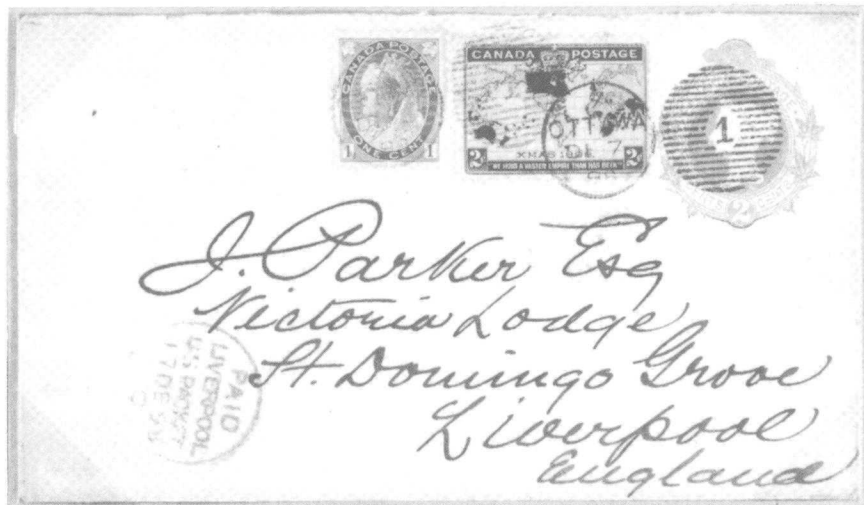 CANADA POSTAGE
1 ONE CENT 1
CANADA POSTAGE
XMAS 1898
2 "WE HOLD A VASTER EMPIRE THAN HAS BEEN" 2
OTTAWA
7
1
2
J. Parker Esq
Victoria Lodge
St. Domingo Grove
Liverpool
England
PAID
LIVERPOOL
U.S. PACKET
17 DE 98